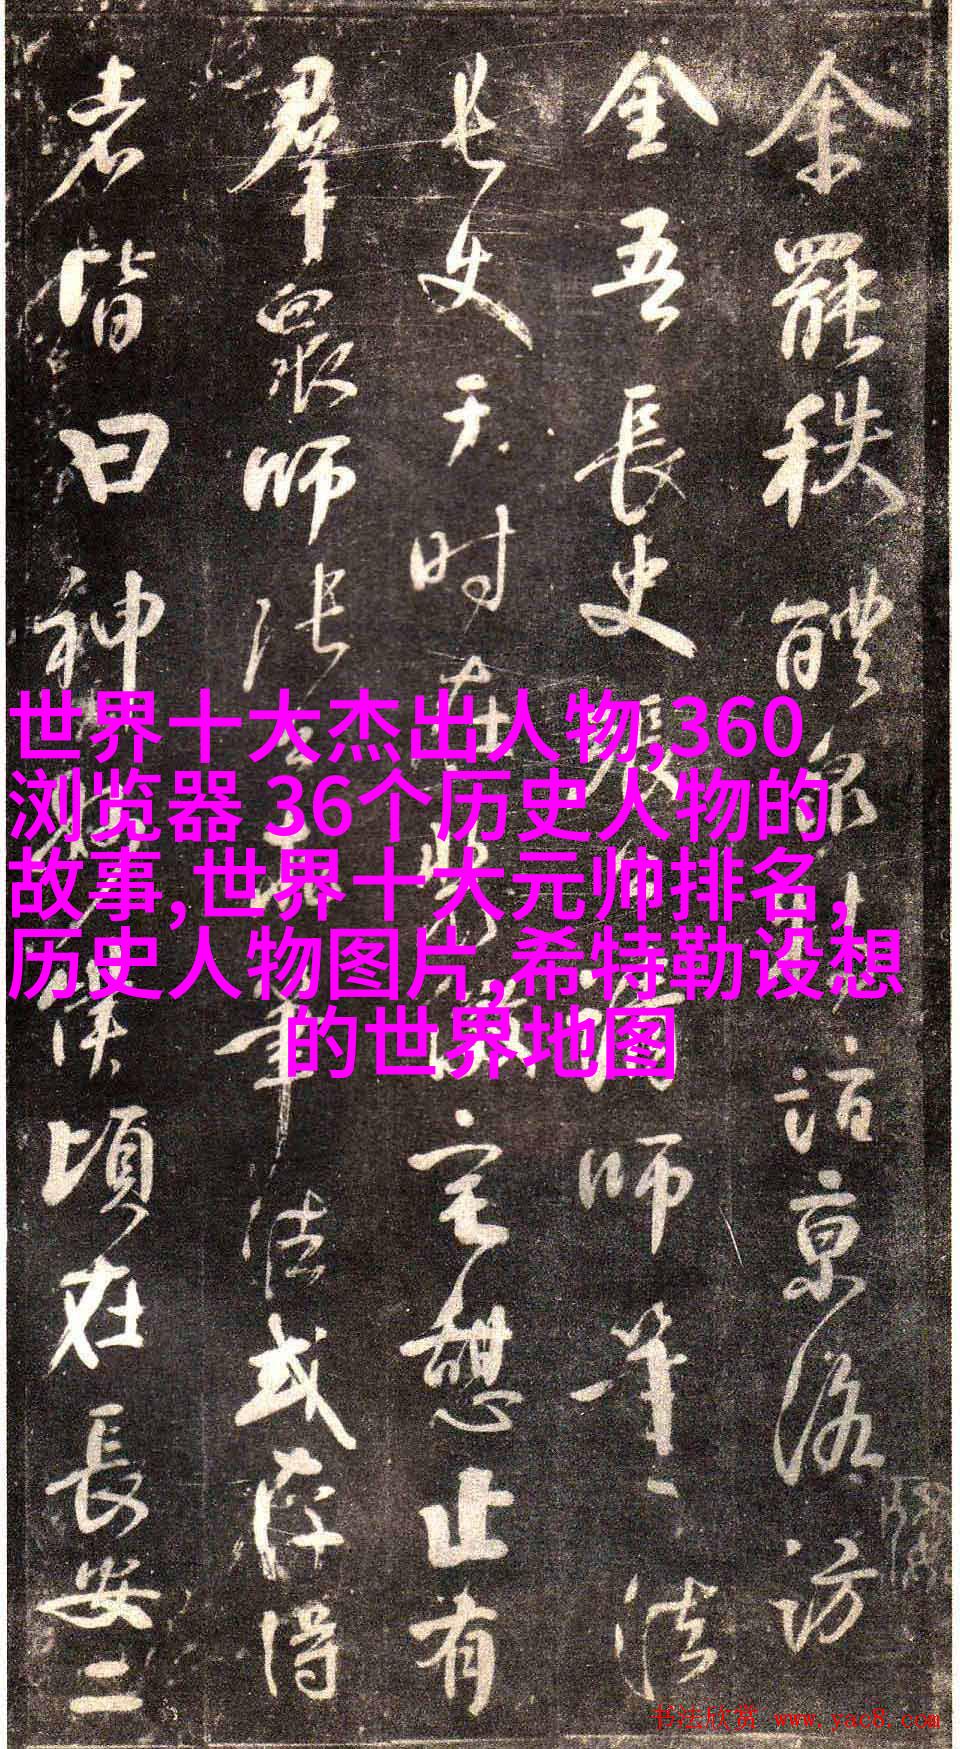 余罷秩醴泉 詣京洛訪
金吾長史張 師筆法
長史 天时在 宅憩止有
羣眾師張 筆法或存得
者皆曰神 頃在長安二
世界十大杰出人物,360
浏览器 36个历史人物的
故事,世界十大元帅排名,
历史人物图片,希特勒设想
的世界地图
书法欣赏 www.yac8.com